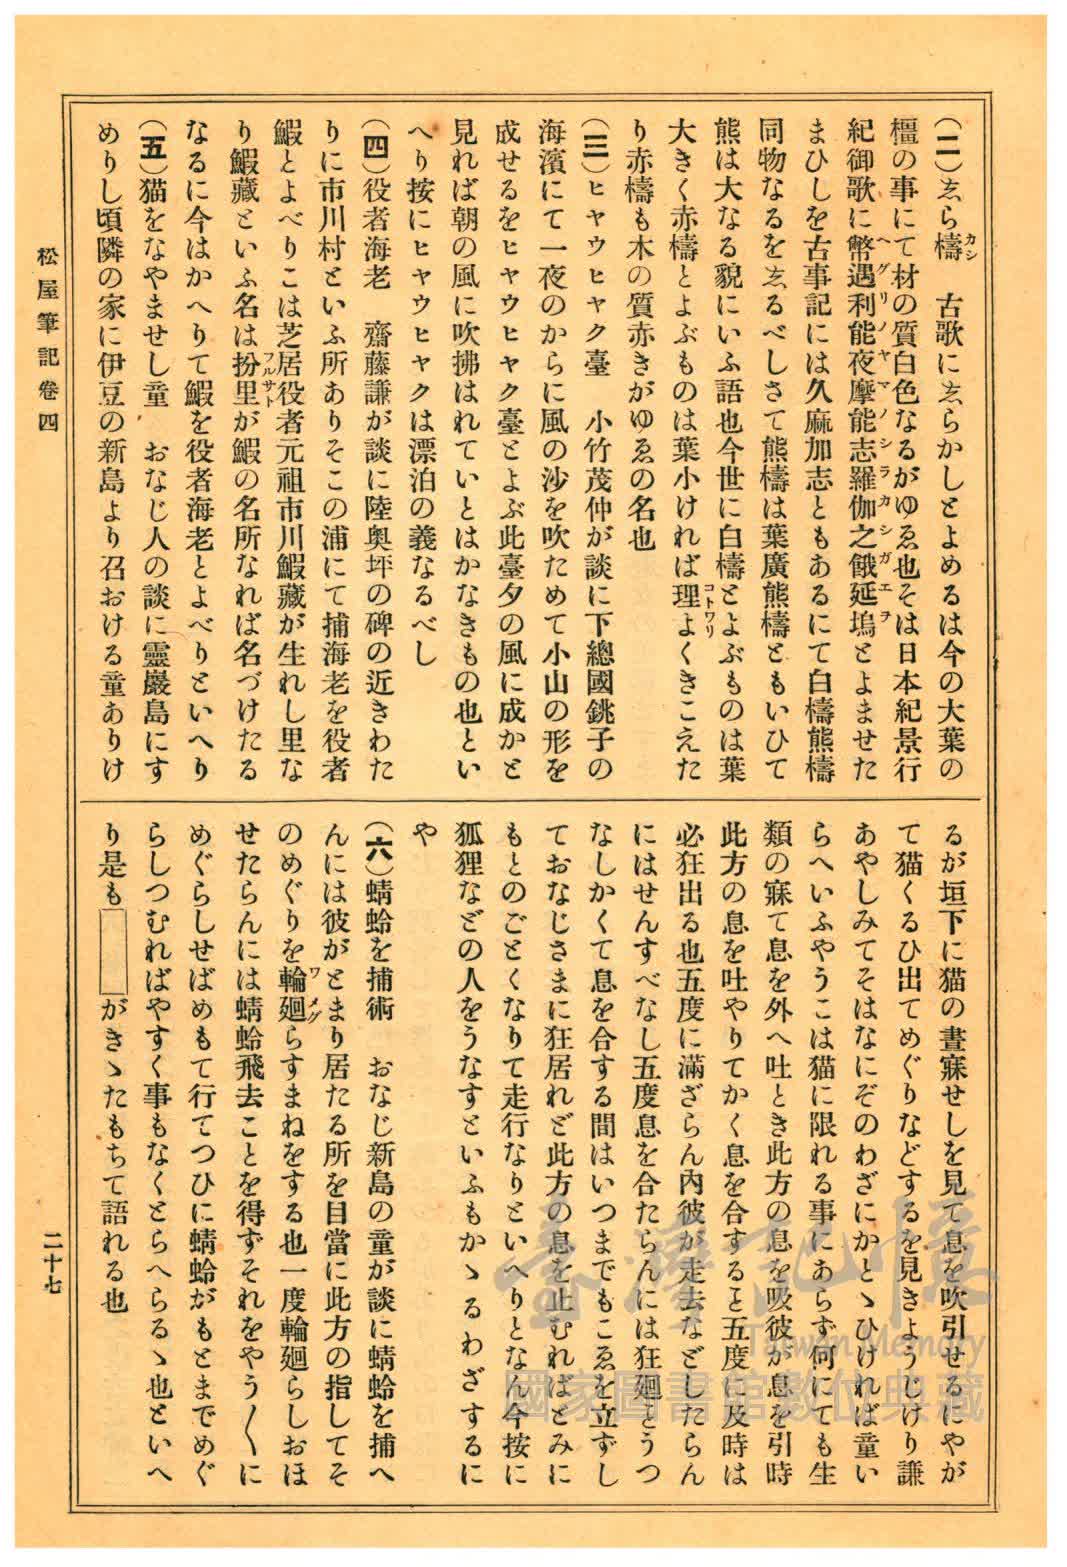 (二)𛁈ら檮 古歌に𛁈らかしとよめるは今の大葉の
カシ
橿の事にて材の質白色なるがゆゑ也そは日本紀景行
紀御歌に幣遇利能夜摩能志羅伽之餓延塢とよませた
ヘグリノヤマノシラカシガエヲ
まひしを古事記には久麻加志ともあるにて白檮熊檮
同物なるを𛁈るべしさて熊檮は葉廣熊檮ともいひて
熊は大なる貌にいふ語也今世に白檮とよぶものは葉
大きく赤檮とよぶものは葉小ければ理よくきこえた
コトワリ
り赤檮も木の質赤きがゆゑの名也
(三)ヒヤウヒヤク臺 小竹茂仲が談に下總國銚子の
海濱にて一夜のからに風の沙を吹ためて小山の形を
成せるをヒヤウヒヤク臺とよぶ此臺夕の風に成かと
見れば朝の風に吹拂はれていとはかなきもの也とい
へり按にヒヤウヒヤクは漂泊の義なるべし
(四)役者海老 齋藤謙が談に陸奥坪の碑の近きわた
りに市川村といふ所ありそこの浦にて捕海老を役者
鰕とよべりこは芝居役者元祖市川鰕藏が生れし里な
り鰕藏といふ名は扮里が鰕の名所なれば名づけたる
フルサト
なるに今はかへりて鰕を役者海老とよべりといへり
(五)猫をなやませし童 おなじ人の談に靈巖島にす
めりし頃隣の家に伊豆の新島より召おける童ありけ
るが垣下に猫の晝寐せしを見て息を吹引せるにやが
て猫くるひ出てめぐりなどするを見きようじけり謙
あやしみてそはなにぞのわざにかとゝひければ童い
らへいふやうこは猫に限れる事にあらず何にても生
類の寐て息を外へ吐とき此方の息を吸彼が息を引時
此方の息を吐やりてかく息を合すること五度に及時は
必狂出る也五度に滿ざらん内彼が走去などしたらん
にはせんすべなし五度息を合たらんには狂廻とうつ
なしかくて息を合する間はいつまでもこゑを立ずし
ておなじさまに狂居れど此方の息を止むればとみに
もとのごとくなりて走行なりといへりとなん今按に
狐狸などの人をうなすといふもかゝるわざするに
や
(六)蜻蛉を捕術 おなじ新島の童が談に蜻蛉を捕へ
んには彼がとまり居たる所を目當に此方の指してそ
のめぐりを輪廻らすまねをする也一度輪廻らしおほ
ワメグ
せたらんには蜻蛉飛去ことを得ずそれをやう〳〵に
めぐらしせばめもて行てつひに蜻蛉がもとまでめぐ
らしつむればやすく事もなくとらへらるゝ也といへ
り是も がきゝたもちて語れる也
松屋筆記卷四
二十七
臺灣記憶
Taiwan Memory
國家圖書館數位典藏